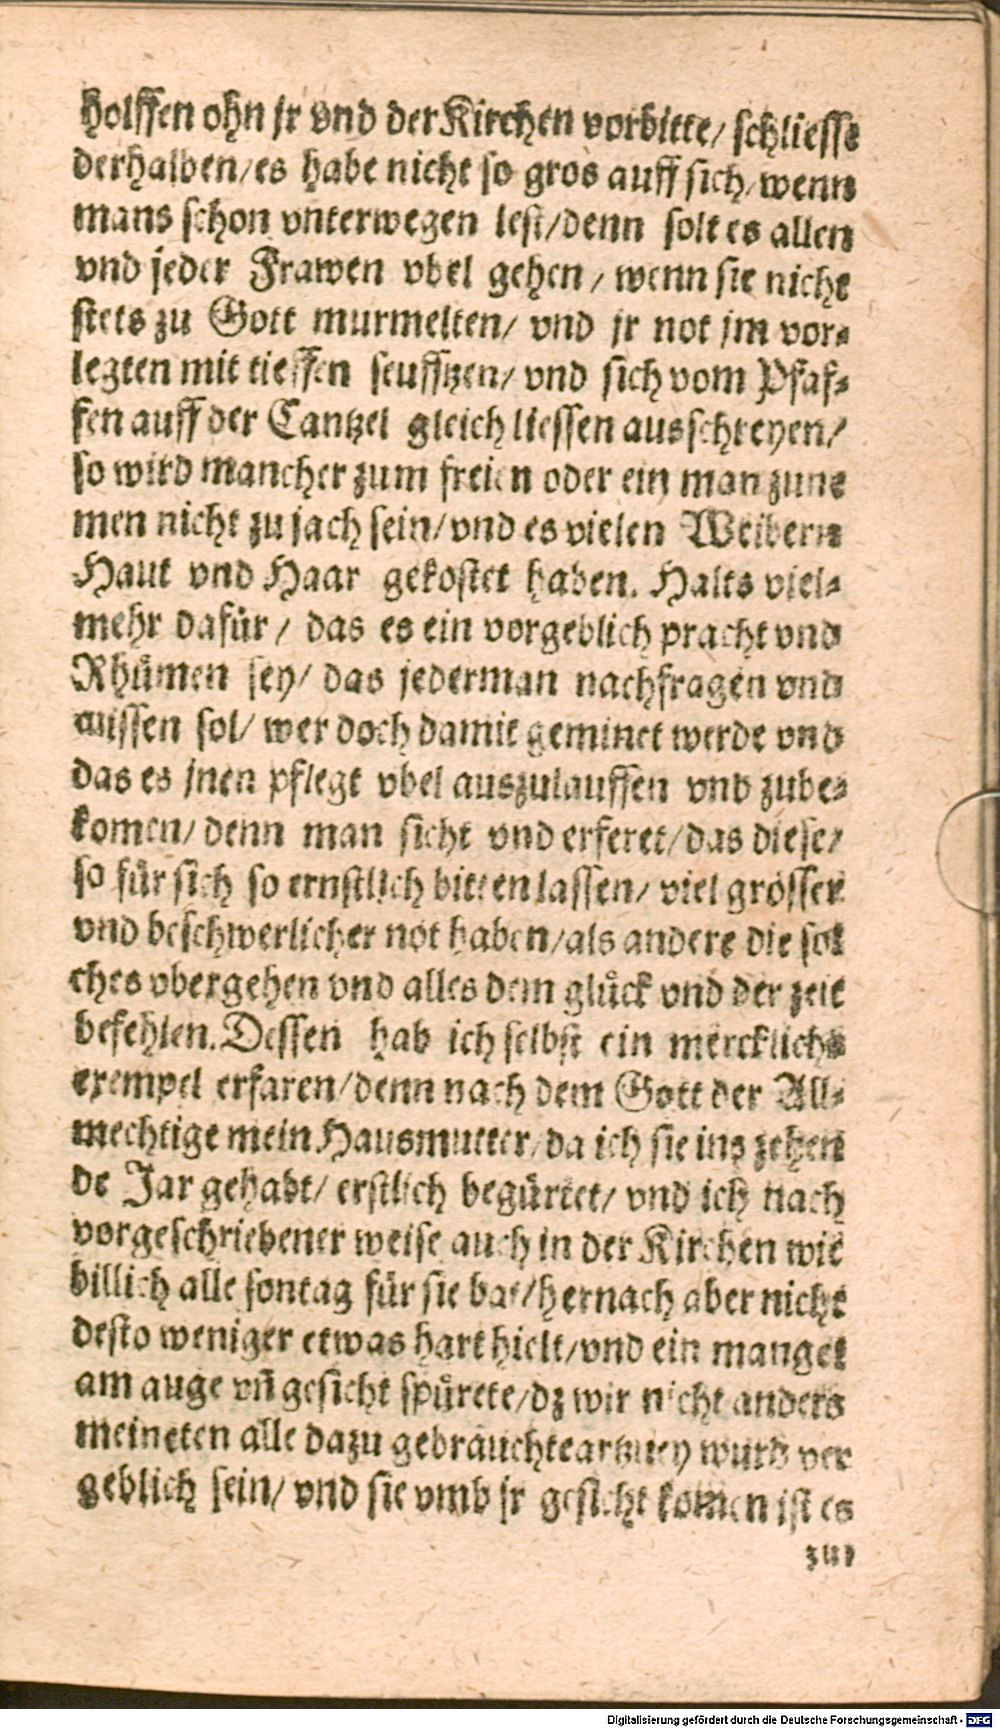 holffen ohn jr vnd der Kirchen vorbitte/ schliesse
derhalben/es habe nicht so gros auff sich/wenn
mans schon vnterwegen lest/denn solt es allen
vnd jeder Frawen vbel gehen/ wenn sie nicht
stets zu Gott murmelten/ vnd jr not jm vor-
legten mit tieffen seufftzen/ vnd sich vom Pfaf-
fen auff der Cantzel gleich liessen ausschreyen/
so wird mancher zum freien oder ein man zune
men nicht zu jach sein/vnd es vielen Weibern
Haut vnd Haar gekostet haben. Halts viel-
mehr dafür/ das es ein vorgeblich pracht vnd
Rhümen sey/ das jederman nachfragen vnd
wissen sol/ wer doch damit geminet werde vnd
das es jnen pflegt vbel auszulauffen vnd zube-
komen/ denn man sicht vnd erferet/das diese/
so für sich so ernstlich bitten lassen/ viel grösser
vnd beschwerlicher not haben/als andere die sol
ches vbergehen vnd alles dem glück vnd der zeit
befehlen. Dessen hab ich selbst ein mercklichs
exempel erfaren/denn nach dem Gott der All-
mechtige mein Hausmutter/da ich sie ins zehen
de Jar gehabt/ erstlich begürtet/ vnd ich nach
vorgeschriebener weise auch in der Kirchen wie
billich alle sontag für sie bat/hernach aber nicht
desto weniger etwas hart hielt/vnd ein mangel
am auge vñ gesicht spürete/dz wir nicht anders
meineten alle dazu gebrauchte artzney würd ver
geblich sein/ vnd sie vmb jr gesicht komen ist es
zur
Digitalisierung gefördert durch die Deutsche Forschungsgemeinschaft - DFG